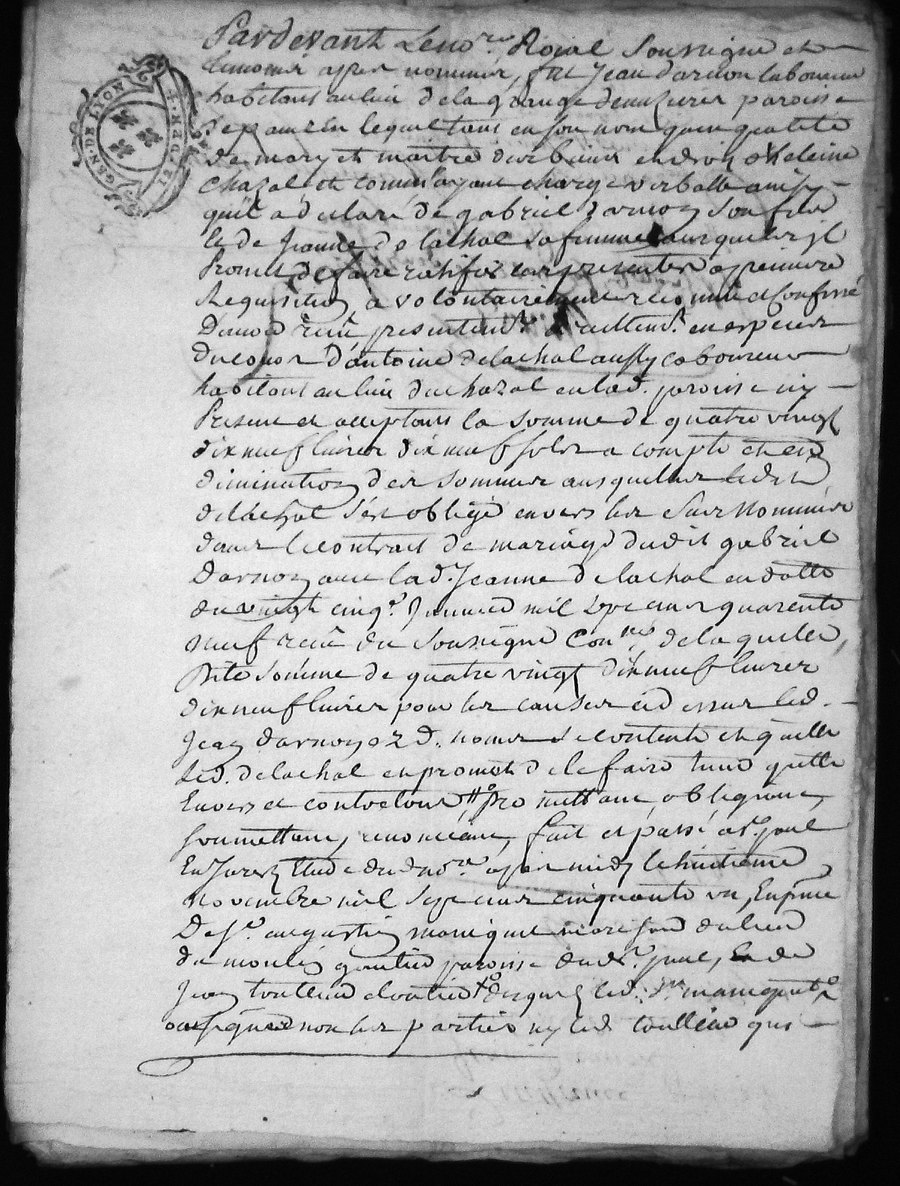 GEN. DE LYON
Pardevant Le no.re Royal Soussigné et
temoins apres nommés, fut Jean darnon laboureur
habitant au lieu de la grange paroisse
de lequel tant en son nom qu'en qualité
de mary et maitre des biens et droits d'heleine
Chazal et comme ayant charge verballe ainsy
quil a declaré de gabriel darnon son fils
et de Jeanne delachal sa femme ausquels il
Promet de faire ratifier ces presentes a premiere
Requisition a volontairement reconnu et Confessé
avoir reçu presentem.t et reellem.t en especes
du cours d'antoine delachal aussy laboureur
habitant au lieu du chazal en lad. paroisse icy
Present et acceptant la somme de quatre vingt
dix neuf livres dix neuf sols a compte et en
diminution des sommes ausquelles ledit
delachal s'est obligé envers les sus nommés
dans le contrat de mariage dudit gabriel
darnon avec lad. Jeanne delachal en datte
du vingt cinq.e Janvier mil sept cens quarente
neuf reçu du soussigné de laquelle
ditte somme de quatre vingt dix neuf livres
dix neuf livres pour les causes cy dessus led.
Jean darnon ez d. noms se contente et quitte
led. delachal et promet de le faire tenir quitte
Envers et contre tous promettant, obligeant,
soumettant, renonceant, fait et passé a S.t paul
En Jarez Etude dud. no.re apres midy le huitieme
novembre mil sept cens cinquante un, En p.nce
de S.r augustin du lieu
du moulin gautier paroisse dud. S.t paul, et de
Jean toulieu led. S.r
a signé non les parties ny led. toulieu qui